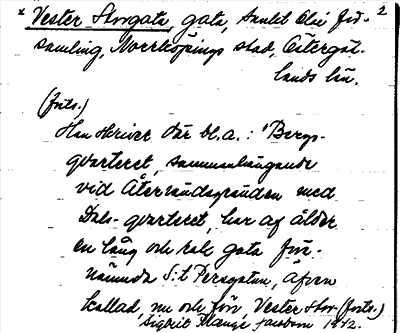 x Vester Storgata, gata, Sankt Olai för- 2
samling, Norrköpings stad, Östergöt-
lands län.
(forts.)
Han skriver där bl.a.: "Bergs-
qvarteret, sammanhängande
vid Återvändsgränden med
Dals-qvarteret, har af ålder
en lång och rak gata för-
nämnda S:t Persgatan, äfven
kallad, nu och förr, Vester Stor- (forts.)
Sigrid 1942.